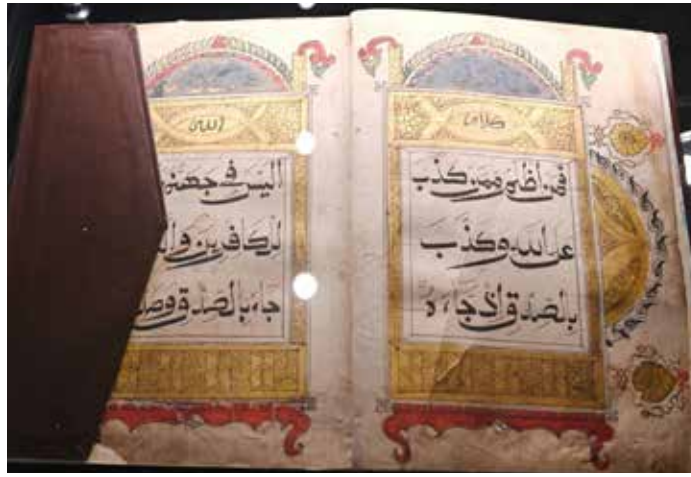 كلام
فمن أظلم ممن كذب
على الله وكذب
بالصدق إذ جاءه
الله
اليس في جهنم
للكافرين
جاء بالصدق